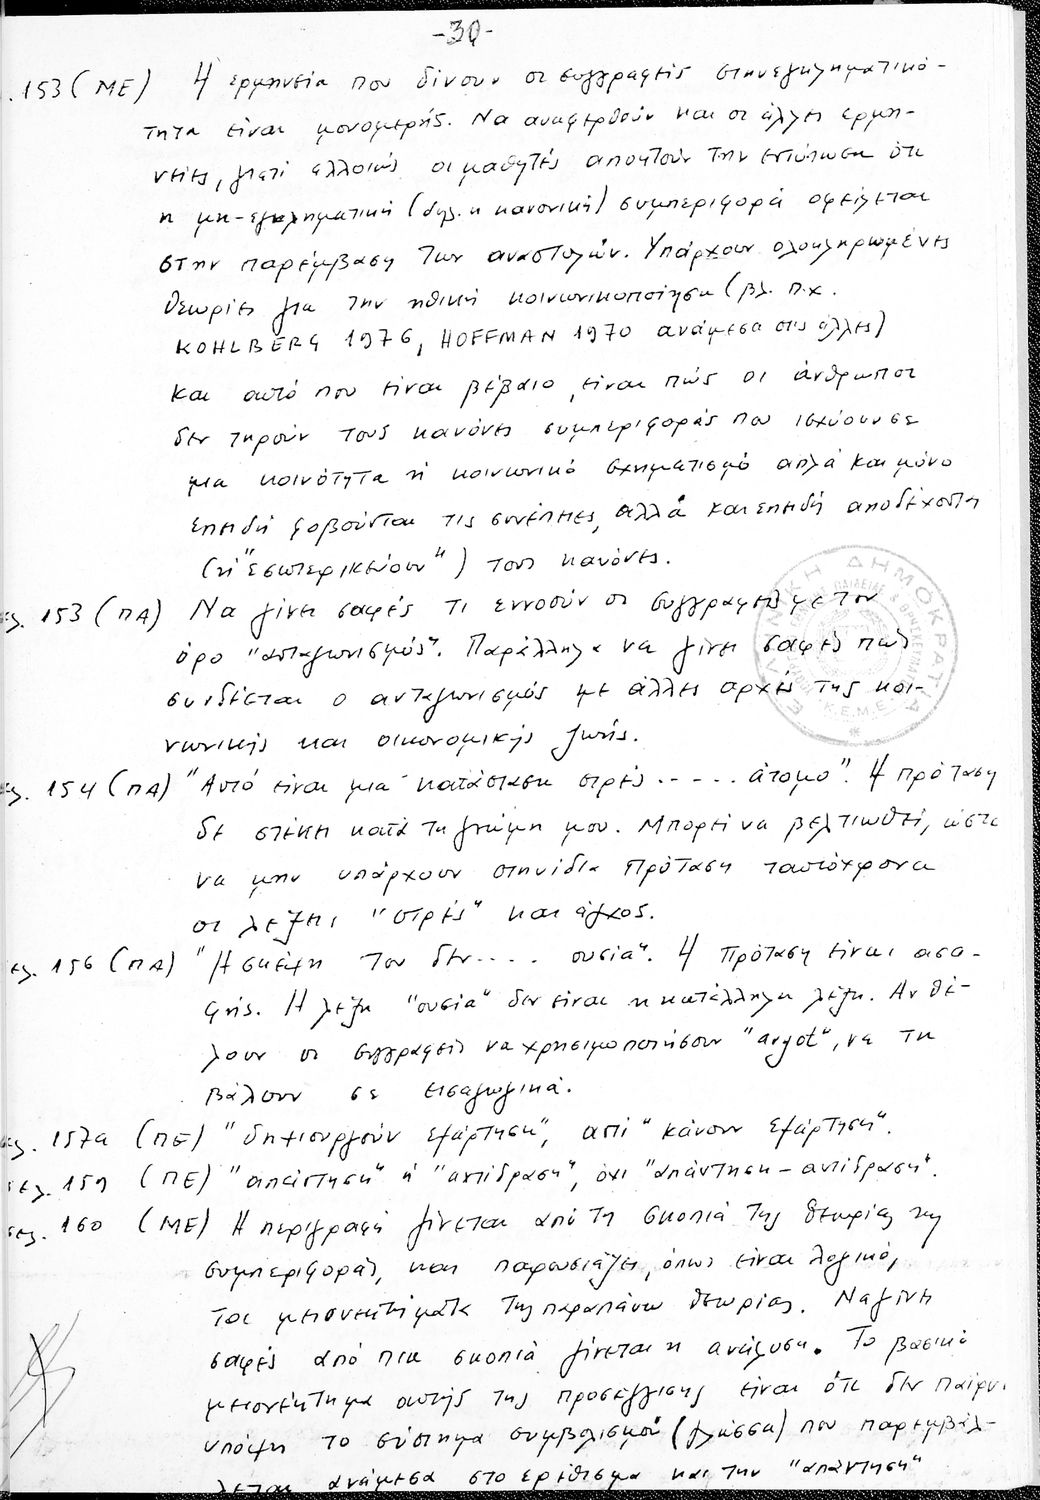 -30-
. 153 (ΜΕ) Η ερμηνεία που δίνουν οι συγγραφείς στην εγκληματικό-
τητα είναι μονομερής. Να αναφερθούν και οι άλλες ερμη-
νείες, γιατί αλλοιώς οι μαθητές αποκτούν την εντύπωση ότι
η μη-εγκληματική (δηλ. η κανονική) συμπεριφορά οφείλεται
στην παρέμβαση των αναστολών. Υπάρχουν ολοκληρωμένες
θεωρίες για την ηθική κοινωνικοποίηση (βλ. π.χ.
KOHLBERG 1976, HOFFMAN 1970 ανάμεσα στις άλλες)
και αυτό που είναι βέβαιο, είναι πώς οι άνθρωποι
δεν τηρούν τους κανόνες συμπεριφοράς που ισχύουν σε
μια κοινότητα ή κοινωνικό σχηματισμό απλά και μόνο
επειδή φοβούνται τις συνέπειες, αλλά και επειδή αποδέχονται
(ή "εσωτερικεύουν") τους κανόνες.
σελ. 153 (ΠΑ) Να γίνει σαφές τι εννοούν οι συγγραφείς με τον
όρο "ανταγωνισμός". Παράλληλα να γίνει σαφές πώς
συνδέεται ο ανταγωνισμός με άλλες αρχές της κοι-
νωνικής και οικονομικής ζωής.
σελ. 154 (ΠΑ) "Αυτό είναι μια κατάσταση στρές ..... άτομο". Η πρόταση
δε στέκει κατά τη γνώμη μου. Μπορεί να βελτιωθεί, ώστε
να μην υπάρχουν στην ίδια πρόταση ταυτόχρονα
οι λέξεις "στρές" και άγχος.
σελ. 156 (ΠΑ) "Η σκέψη του δεν .... ουσία". Η πρόταση είναι ασα-
φής. Η λέξη "ουσία" δεν είναι η κατάλληλη λέξη. Αν θέ-
λουν οι συγγραφείς να χρησιμοποιήσουν "argot", να τη
βάλουν σε εισαγωγικά.
σελ. 157α (ΠΕ) "δημιουργούν εξάρτηση", αντί "κάνουν εξάρτηση".
σελ. 159 (ΠΕ) "απάντηση" ή "αντίδραση", όχι "απάντηση - αντίδραση".
σελ. 160 (ΜΕ) Η περιγραφή γίνεται από τη σκοπιά της θεωρίας της
συμπεριφοράς, και παρουσιάζει, όπως είναι λογικό,
τα μειονεκτήματα της παραπάνω θεωρίας. Να γίνει
σαφές από πια σκοπιά γίνεται η ανάλυση. Το βασικό
μειονέκτημα αυτής της προσέγγισης είναι ότι δεν παίρνει
υπόψη το σύστημα συμβολισμού (γλώσσα) που παρεμβάλ-
λεται ανάμεσα στο ερέθισμα και την "απάντηση"
ΕΛΛΗΝΙΚΗ ΔΗΜΟΚΡΑΤΙΑ
Κ.Ε.Μ.Ε.